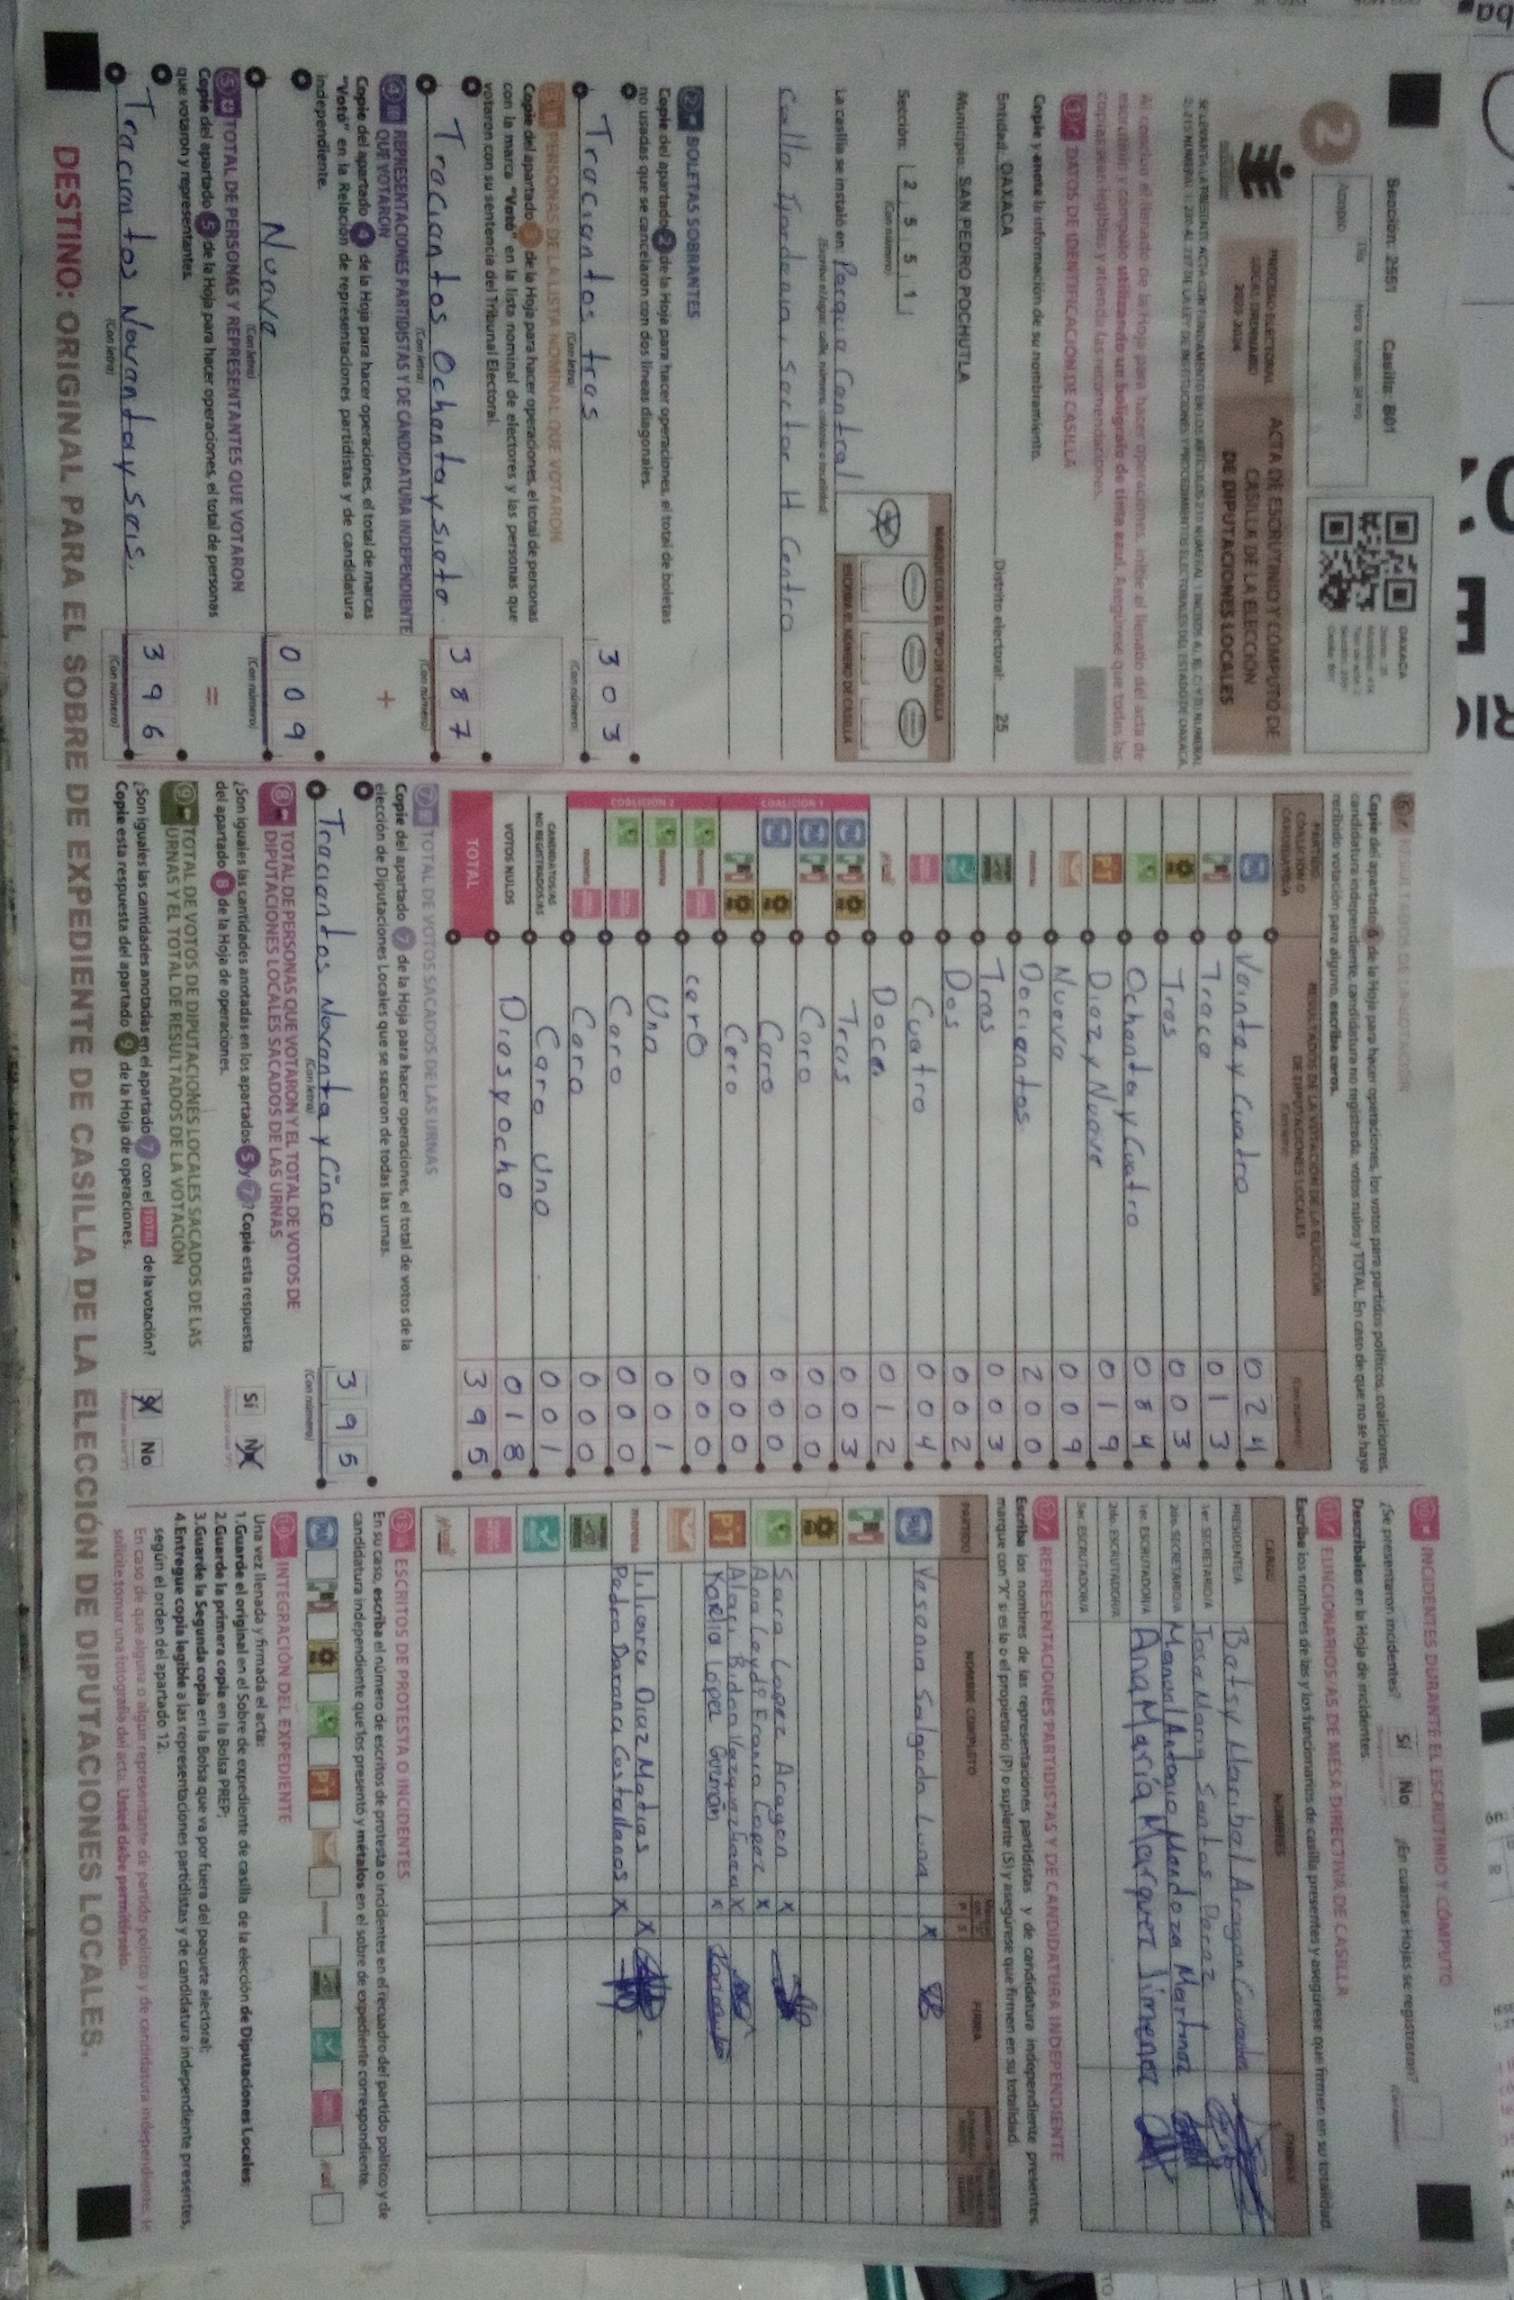 Sección: 2551 Casilla: B01
2
Acopio:
Día
Hora: formato 24 hrs
OAXACA
PROCESO ELECTORAL
LOCAL ORDINARIO
2023-2024
ACTA DE ESCRUTINIO Y CÓMPUTO DE
CASILLA DE LA ELECCIÓN
DE DIPUTACIONES LOCALES
Al concluir el llenado de la Hoja para hacer operaciones, inicie el llenado del acta de
escrutinio y cómputo utilizando un bolígrafo de tinta azul. Asegúrese que todas las
copias sean legibles y atienda las recomendaciones.
1 DATOS DE IDENTIFICACIÓN DE CASILLA
Copie y anote la información de su nombramiento.
Entidad: OAXACA Distrito electoral: 25
Municipio: SAN PEDRO POCHUTLA
Sección: 2 5 5 1
(Con número)
MARQUE CON X EL TIPO DE CASILLA
ESCRIBA EL NÚMERO DE CASILLA
La casilla se instaló en: Parque Central
(Escriba el lugar: calle, número, colonia o localidad)
Sector H Centro
2 BOLETAS SOBRANTES
Copie del apartado 2 de la Hoja para hacer operaciones, el total de boletas
no usadas que se cancelaron con dos líneas diagonales.
Trecientos tres 3 0 3
(Con letra) (Con número)
3 PERSONAS DE LA LISTA NOMINAL QUE VOTARON
Copie del apartado 3 de la Hoja para hacer operaciones, el total de personas
con la marca "Votó" en la lista nominal de electores y las personas que
votaron con su sentencia del Tribunal Electoral.
Trecientos Ochenta y siete 3 8 7
(Con letra) (Con número)
4 REPRESENTACIONES PARTIDISTAS Y DE CANDIDATURA INDEPENDIENTE
QUE VOTARON
+
Copie del apartado 4 de la Hoja para hacer operaciones, el total de marcas
"Votó" en la Relación de representaciones partidistas y de candidatura
independiente.
Nueve 0 0 9
(Con letra) (Con número)
5 TOTAL DE PERSONAS Y REPRESENTANTES QUE VOTARON
=
Copie del apartado 5 de la Hoja para hacer operaciones, el total de personas
que votaron y representantes.
Trecientos Noventa y seis. 3 9 6
(Con letra) (Con número)
6 RESULTADOS DE LA VOTACIÓN
Copie del apartado 6 de la Hoja para hacer operaciones, los votos para partidos políticos, coaliciones,
candidatura independiente, candidatura no registrada, votos nulos y TOTAL. En caso de que no se haya
recibido votación para alguno, escriba ceros.
PARTIDO, COALICIÓN O CANDIDATURA
RESULTADOS DE LA VOTACIÓN DE LA ELECCIÓN
DE DIPUTACIONES LOCALES
(Con letra) (Con número)
PAN Veinte y Cuatro 0 2 4
Trece 0 1 3
Tres 0 0 3
Ochenta y Cuatro 0 8 4
PT Diez y Nueve 0 1 9
Nueve 0 0 9
morena Docientos 2 0 0
Tres 0 0 3
Dos 0 0 2
Cuatro 0 0 4
Doce 0 1 2
COALICIÓN 1
Tres 0 0 3
Cero 0 0 0
Cero 0 0 0
Cero 0 0 0
COALICIÓN 2
cero 0 0 0
Uno 0 0 1
Cero 0 0 0
Cero 0 0 0
CANDIDATOS/AS
NO REGISTRADOS/AS Cero Uno 0 0 1
VOTOS NULOS Dies y ocho 0 1 8
TOTAL 3 9 5
7 TOTAL DE VOTOS SACADOS DE LAS URNAS
Copie del apartado 7 de la Hoja para hacer operaciones, el total de votos de la
elección de Diputaciones Locales que se sacaron de todas las urnas.
Trecientos Novente y Cinco 3 9 5
(Con letra) (Con número)
8 TOTAL DE PERSONAS QUE VOTARON Y EL TOTAL DE VOTOS DE
DIPUTACIONES LOCALES SACADOS DE LAS URNAS
¿Son iguales las cantidades anotadas en los apartados 5 y 7? Copie esta respuesta
del apartado 8 de la Hoja de operaciones.
Sí No
9 TOTAL DE VOTOS DE DIPUTACIONES LOCALES SACADOS DE LAS
URNAS Y EL TOTAL DE RESULTADOS DE LA VOTACIÓN
¿Son iguales las cantidades anotadas en el apartado 7 con el TOTAL de la votación?
Copie esta respuesta del apartado 9 de la Hoja de operaciones.
Sí No
10 INCIDENTES DURANTE EL ESCRUTINIO Y CÓMPUTO
¿Se presentaron incidentes? Sí No ¿En cuántas Hojas se registraron?
Descríbalos en la Hoja de incidentes.
11 FUNCIONARIOS/AS DE MESA DIRECTIVA DE CASILLA
Escriba los nombres de las y los funcionarios de casilla presentes y asegúrese que firmen en su totalidad.
CARGO NOMBRES FIRMAS
PRESIDENTE/A Betsy Maribel Aragon
1er. SECRETARIO/A Jose Maria Santos Perez
2do. SECRETARIO/A Manuel Antonio Mendoza Martinez
1er. ESCRUTADOR/A Ana María Márquez Jimenez
2do. ESCRUTADOR/A
3er. ESCRUTADOR/A
12 REPRESENTACIONES PARTIDISTAS Y DE CANDIDATURA INDEPENDIENTE
Escriba los nombres de las representaciones partidistas y de candidatura independiente presentes,
marque con "X" si es la o el propietario (P) o suplente (S) y asegúrese que firmen en su totalidad.
PARTIDO NOMBRE COMPLETO P S FIRMA
PAN Yesenia Salgado Luna X
Sara Lopez Aragon X
Ana Leydi Franco Lopez X
PT X
Karla López Guzmán X
morena Lilia Diaz Matias X
Pedro Castellanos X
13 ESCRITOS DE PROTESTA O INCIDENTES
En su caso, escriba el número de escritos de protesta o incidentes en el recuadro del partido político y de
candidatura independiente que los presentó y métalos en el sobre de expediente correspondiente.
14 INTEGRACIÓN DEL EXPEDIENTE
Una vez llenada y firmada el acta:
1.Guarde el original en el Sobre de expediente de casilla de la elección de Diputaciones Locales;
2.Guarde la primera copia en la Bolsa PREP;
3.Guarde la Segunda copia en la Bolsa que va por fuera del paquete electoral;
4.Entregue copia legible a las representaciones partidistas y de candidatura independiente presentes,
según el orden del apartado 12.
En caso de que alguna o algún representante de partido político y de candidatura independiente, le
solicite tomar una fotografía del acta, Usted debe permitírselo.
DESTINO: ORIGINAL PARA EL SOBRE DE EXPEDIENTE DE CASILLA DE LA ELECCIÓN DE DIPUTACIONES LOCALES.